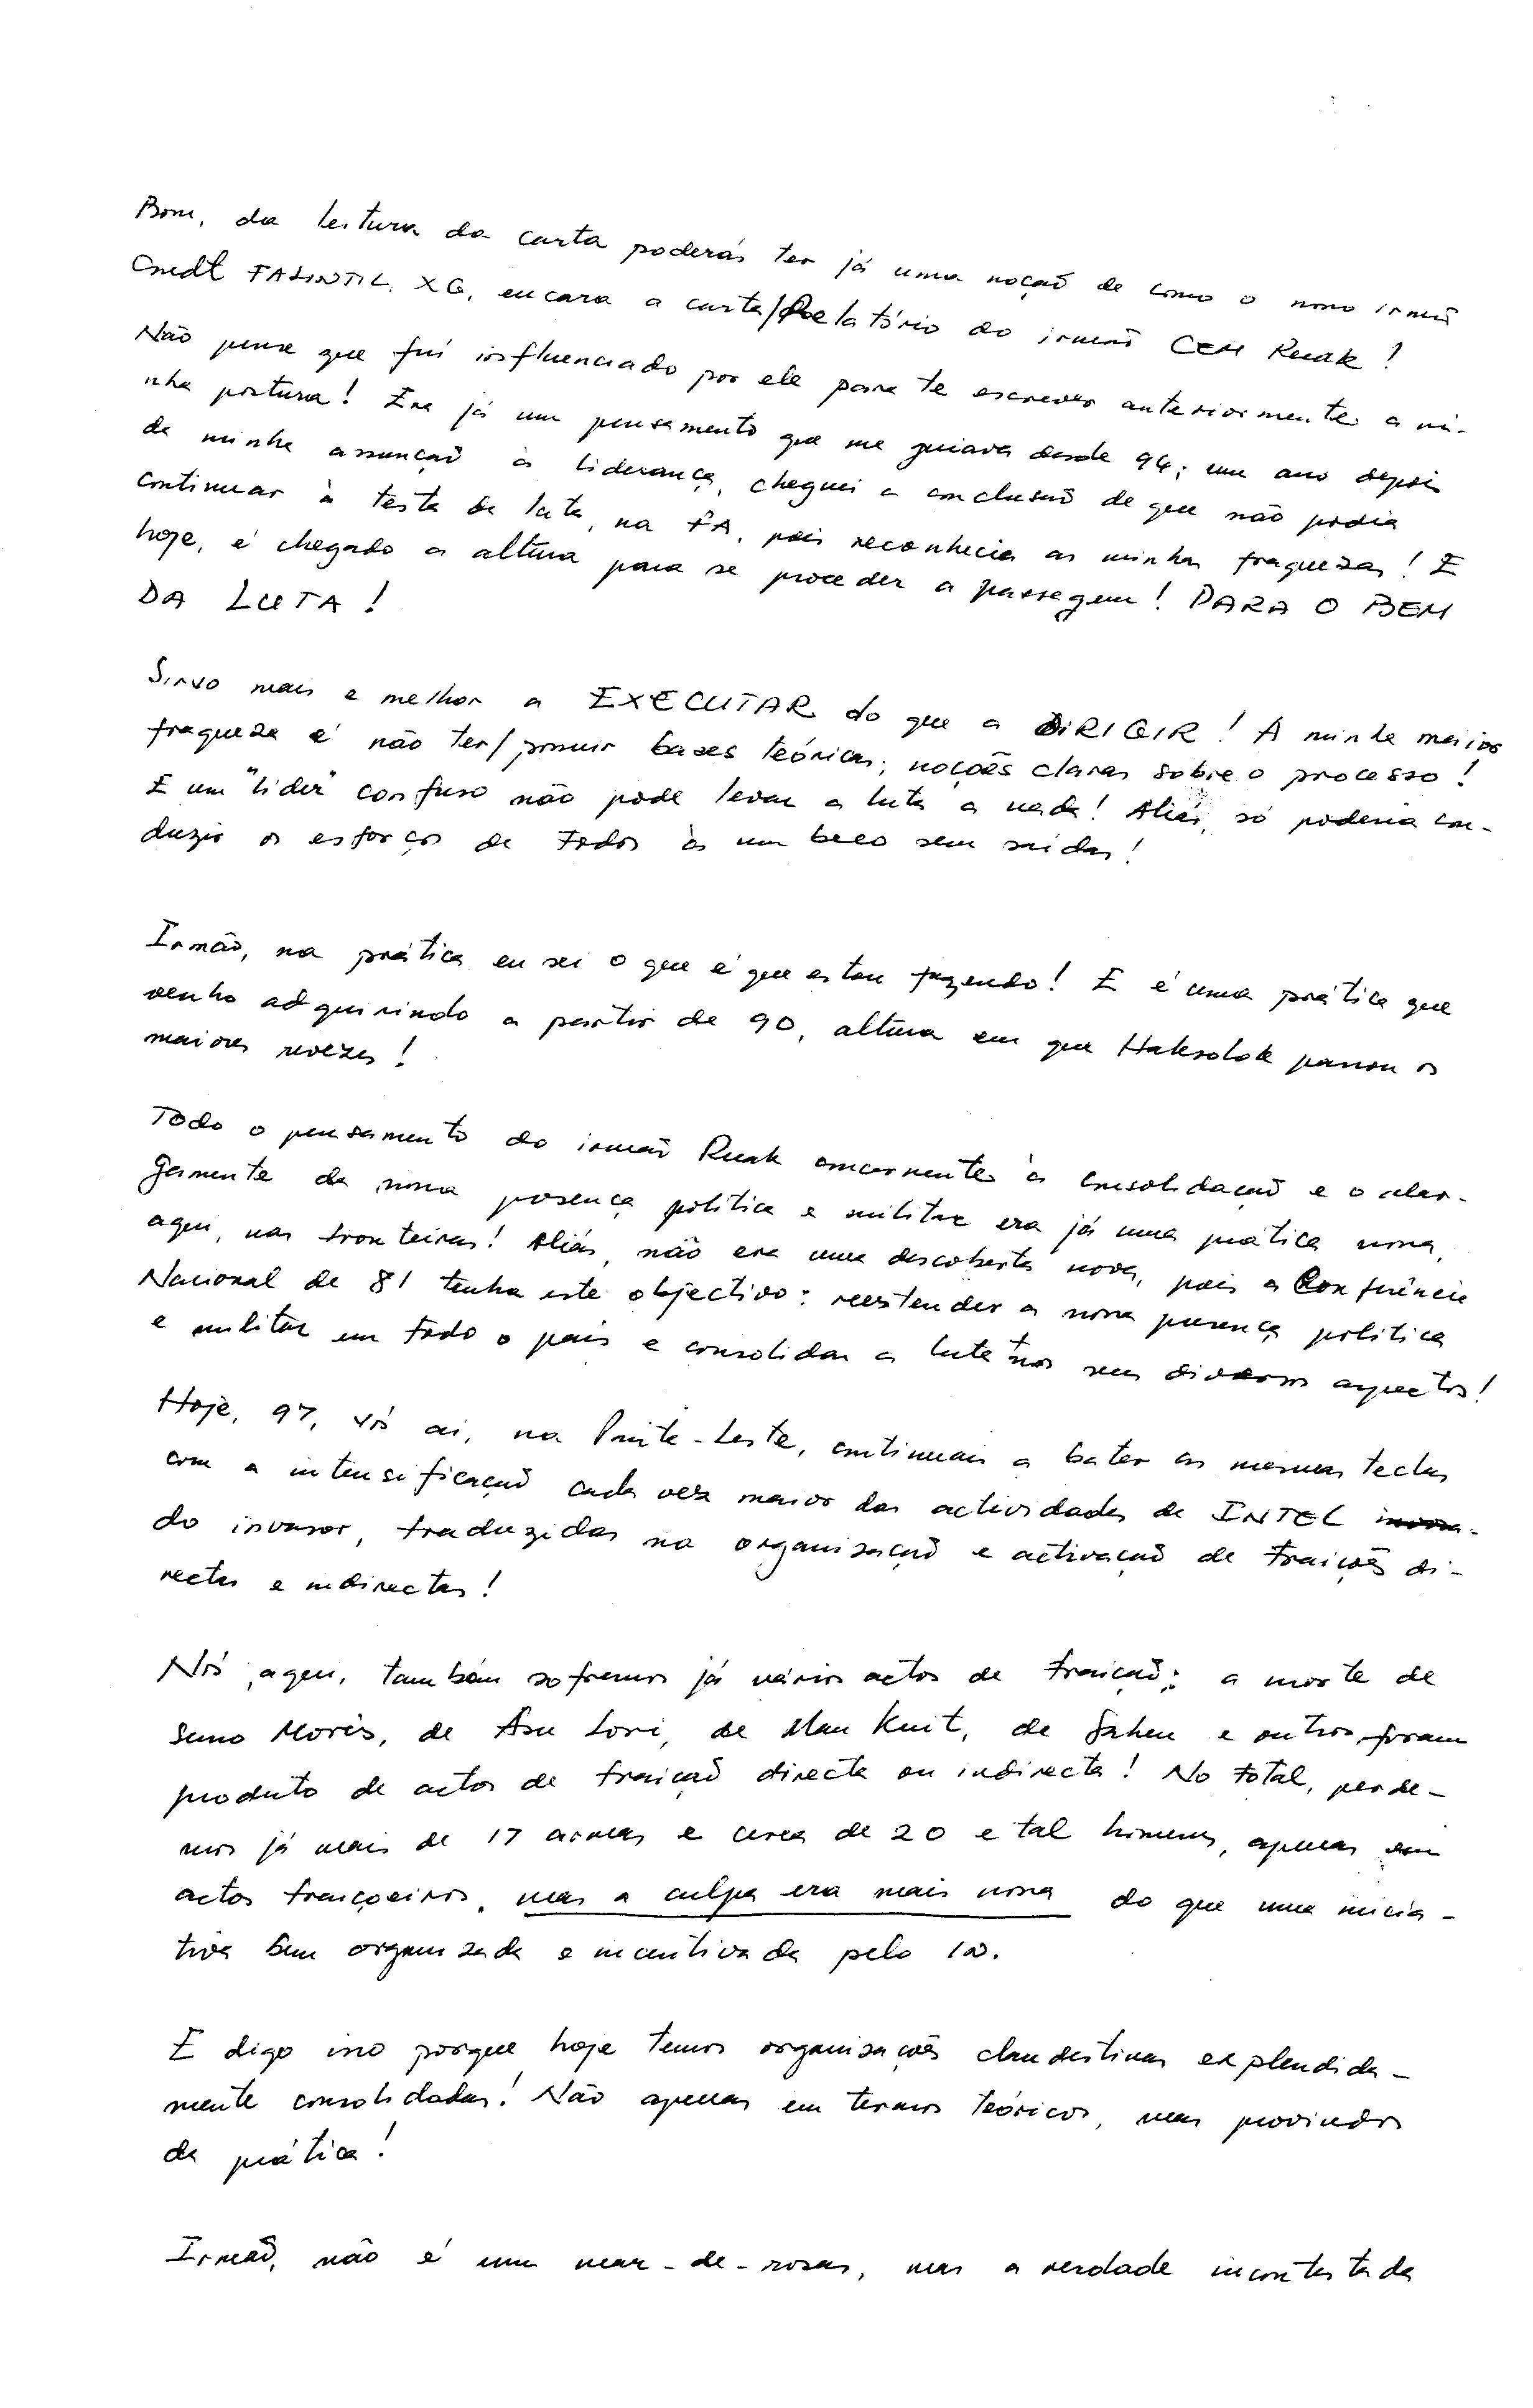 Bom, da leitura da carta poderás ter já uma noção de como o nosso irmão
Cmdt FALINTIL, XG, encara a carta/Relatório do irmão CEM Ruak!
Não pense que fui influenciado por ele para te escrever anteriormente a mi-
nha postura! Era já um pensamento que me guiava desde 94; um ano depois
da minha assunção à liderança, cheguei a conclusão de que não podia
continuar à testa da luta, na FA, pois reconhecia as minhas fraquezas! E
hoje, é chegado a altura para se proceder a passagem! PARA O BEM
DA LUTA!
Sirvo mais e melhor a EXECUTAR do que a DIRIGIR! A minha maior
fraqueza é não ter/possuir bases teóricas, noções claras sobre o processo!
E um "lider" confuso não pode levar a luta a nada! Aliás, só poderia con-
duzir os esforços de todos à um beco sem saídas!
Irmão, na prática eu sei o que é que estou fazendo! E é uma prática que
venho adquirindo a partir de 90, altura em que Haksolok passou os
maiores revezes!
Todo o pensamento do irmão Ruak concernentes à consolidação e o alar-
gamente da nossa presença política e militar era já uma prática nossa,
aqui, nas fronteiras! Aliás, não era uma descoberta nova, pois a Conferência
Nacional de 81 tenha este objectivo: reestender a nossa presença política
e militar em todo o país e consolidar a luta nos seus diversos aspectos!
Hoje, 97, vós aí, na Ponta-Leste, continuais a bater as mesmas teclas
com a intensificação cada vez maior das actividades de INTEL
do invasor, traduzidas na organização e activação de traições di-
rectas e indirectas!
Nós aqui, também sofremos já vários actos de traição: a morte de
Sumo Moris, de Asu Lori, de Mau Kuit, de Saheu e outros, foram
produto de actos de traição directa ou indirecta! No total, perde-
mos já mais de 17 armas e cerca de 20 e tal homens, apenas em
actos traiçoeiros, mas a culpa era mais nossa do que uma inicia-
tiva bem organizada e incentivada pelo IN.
E digo isso porque hoje temos organizações clandestinas explendida-
mente consolidadas! Não apenas em termos teóricos, mas provindos
da prática!
Irmão, não é um mar-de-rosas, mas a verdade incontestada